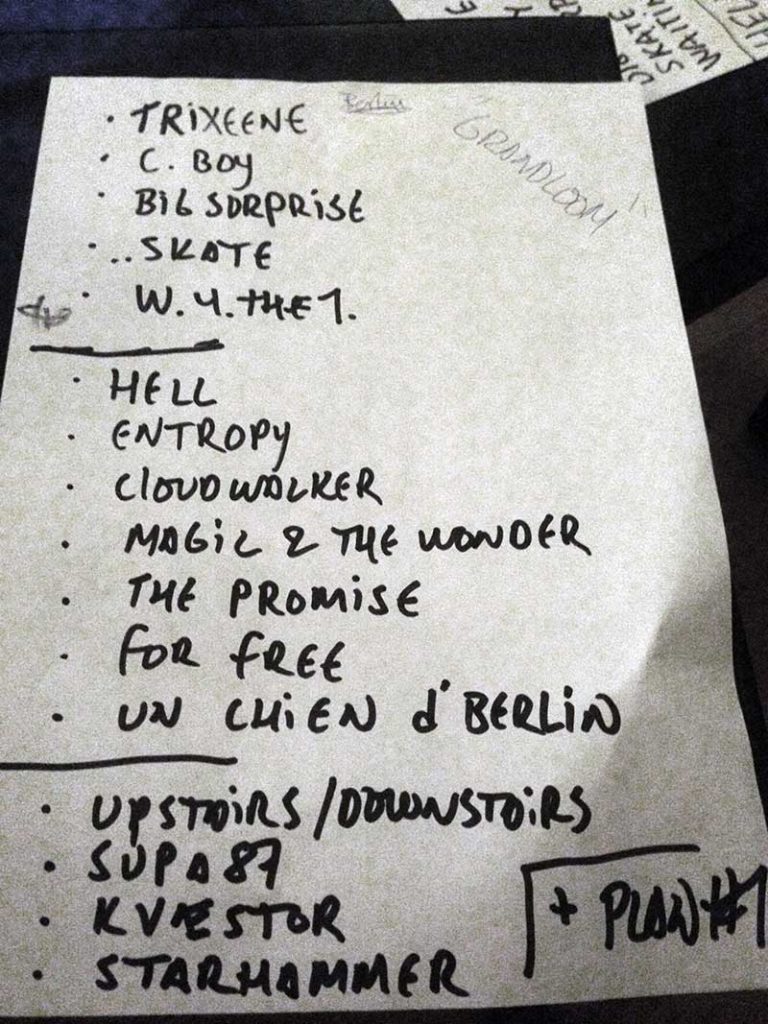 Berlin
"GRANDLOOM"
· TRIXEENE
· C. BOY
· BIG SORPRISE
· ..SKATE
· W.4.THE 1.
· HELL
· ENTROPY
· CLOUDWALKER
· MAGIC & THE WONDER
· THE PROMISE
· FOR FREE
· UN CHIEN d'BERLIN
· UPSTAIRS/DOWNSTAIRS
· SUPA87
· KVÆSTOR
· STARHAMMER
+ PLAN#1
SKATE
WAITIN
HEL